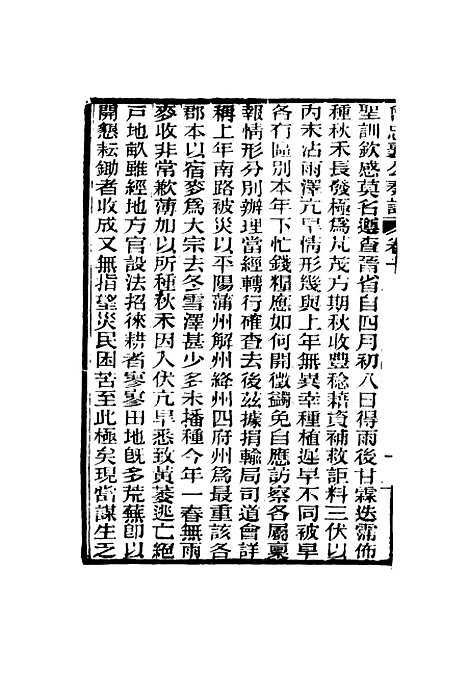 曾忠襄公奏議 卷十
聖訓欽感莫名遵查晉省自四月初八日得雨後甘霖迭霈佈
種秋禾長發極為芃茂方期秋收豐稔藉資補救詎料三伏以
內未沾雨澤亢旱情形幾與上年無異幸種植遲早不同被旱
各有區別本年下忙錢糧應如何開徵蠲免自應訪察各屬稟
報情形分別辦理當經轉行確查去後茲據捐輸局司道會詳
稱上年南路被災以平陽蒲州解州絳州四府州為最重該各
郡本以宿麥為大宗去冬雪澤甚少多未播種今年一春無雨
麥收非常歉薄加以所種秋禾因入伏亢旱悉致黃萎逃亡絕
戶地畝雖經地方官設法招徠耕者寥寥田地旣多荒蕪卽以
開懇耘鋤者收成又無指望災民困苦至此極矣現當謀生之